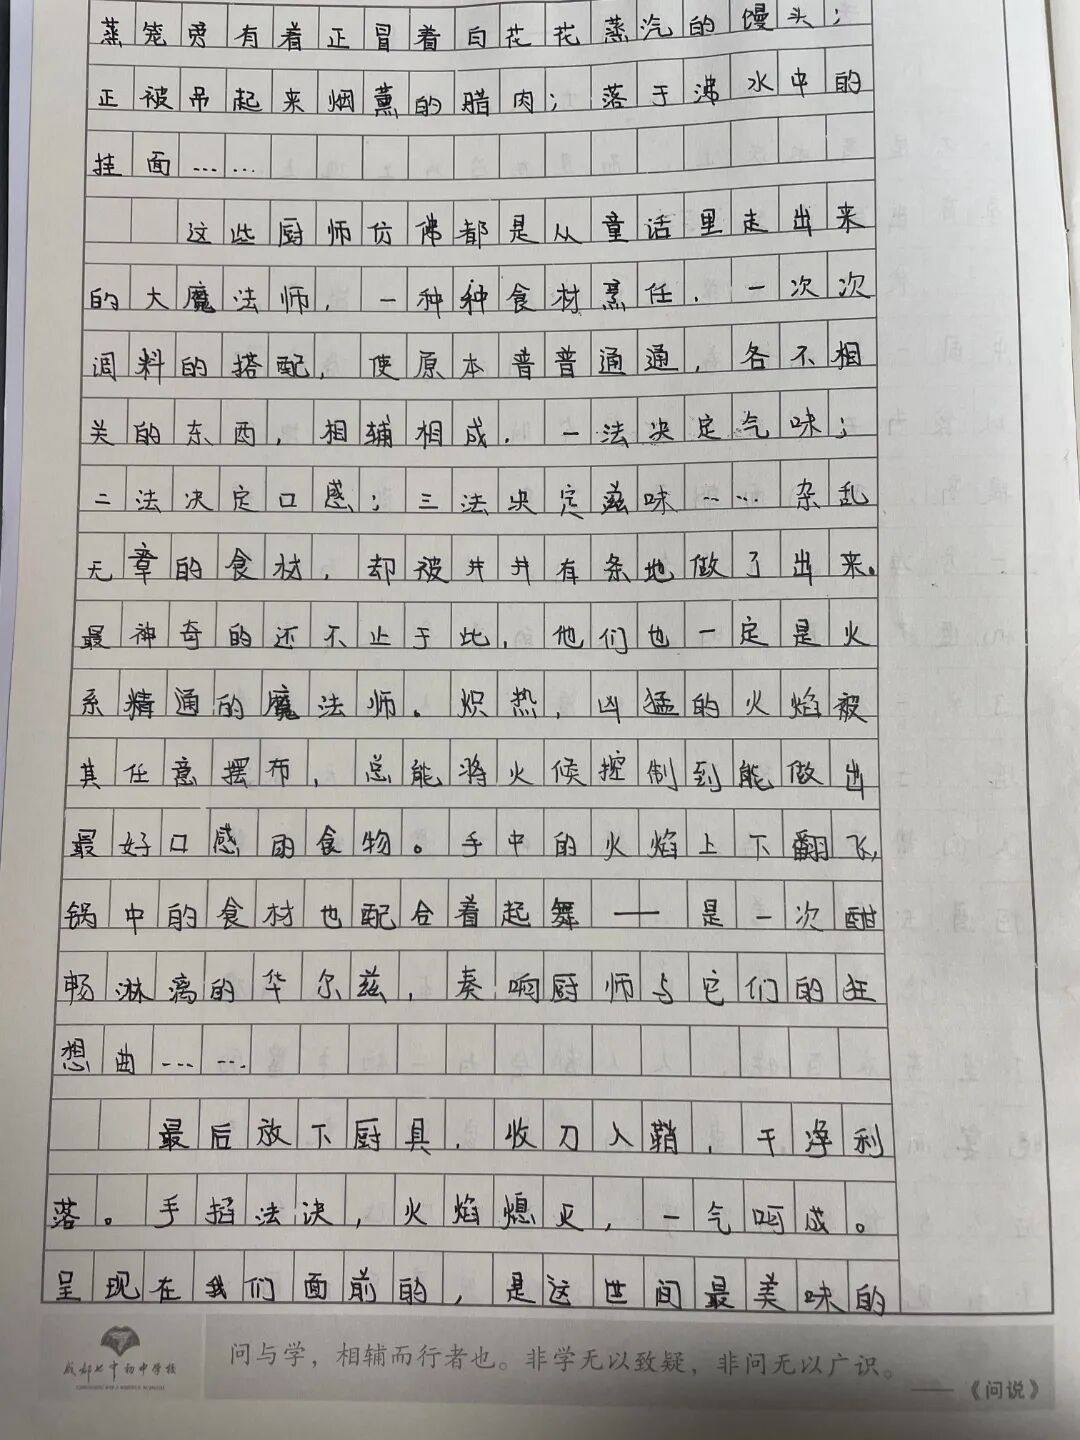 蒸笼旁有着正冒着白花花蒸汽的馒头；
正被吊起来烟薰的腊肉；落于沸水中的
挂面……
这些厨师仿佛都是从童话里走出来
的大魔法师，一种种食材烹任，一次次
调料的搭配，使原本普普通通，各不相
关的东西，相辅相成，一法决定气味；
二法决定口感；三法决定滋味……杂乱
无章的食材，却被井井有条地做了出来。
最神奇的还不止于此，他们也一定是火
系精通的魔法师。炽热，凶猛的火焰被
其任意摆布，总能将火候控制到能做出
最好口感的食物。手中的火焰上下翻飞，
锅中的食材也配合着起舞——是一次酣
畅淋漓的华尔兹，奏响厨师与它们的狂
想曲……
最后放下厨具，收刀入鞘，干净利
落。手掐法决，火焰熄灭，一气呵成。
呈现在我们面前的，是这世间最美味的
成都七中初中学校
问与学，相辅而行者也。非学无以致疑，非问无以广识。
——《问说》